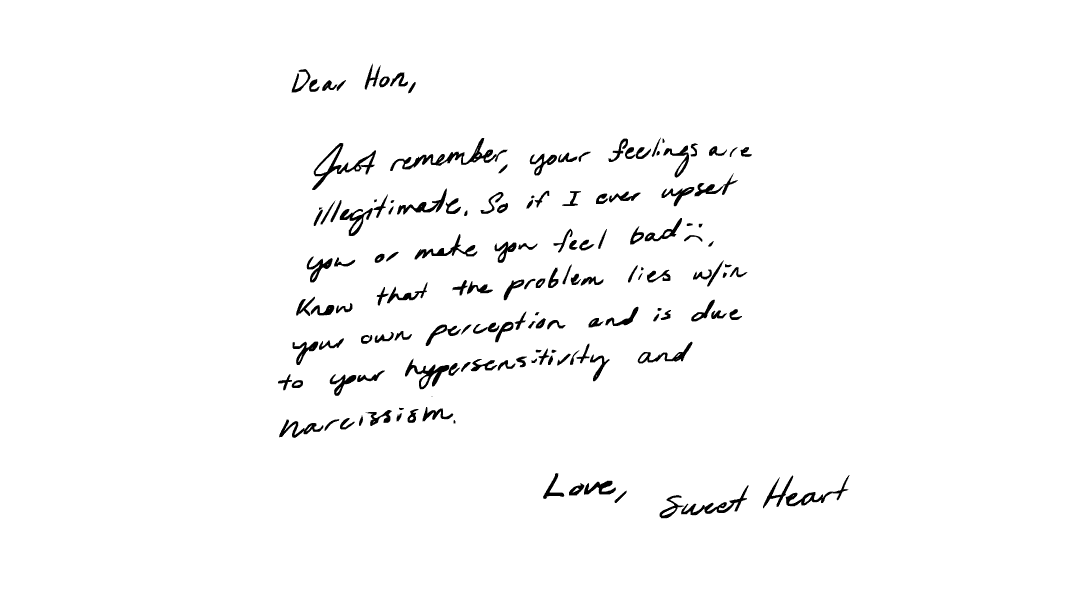 Dear Hon,
Just remember, your feelings are
illegitimate. So if I ever upset
you or make you feel bad :(,
Know that the problem lies w/in
your own perception and is due
to your hypersensitivity and
narcissism.
Love, Sweet Heart